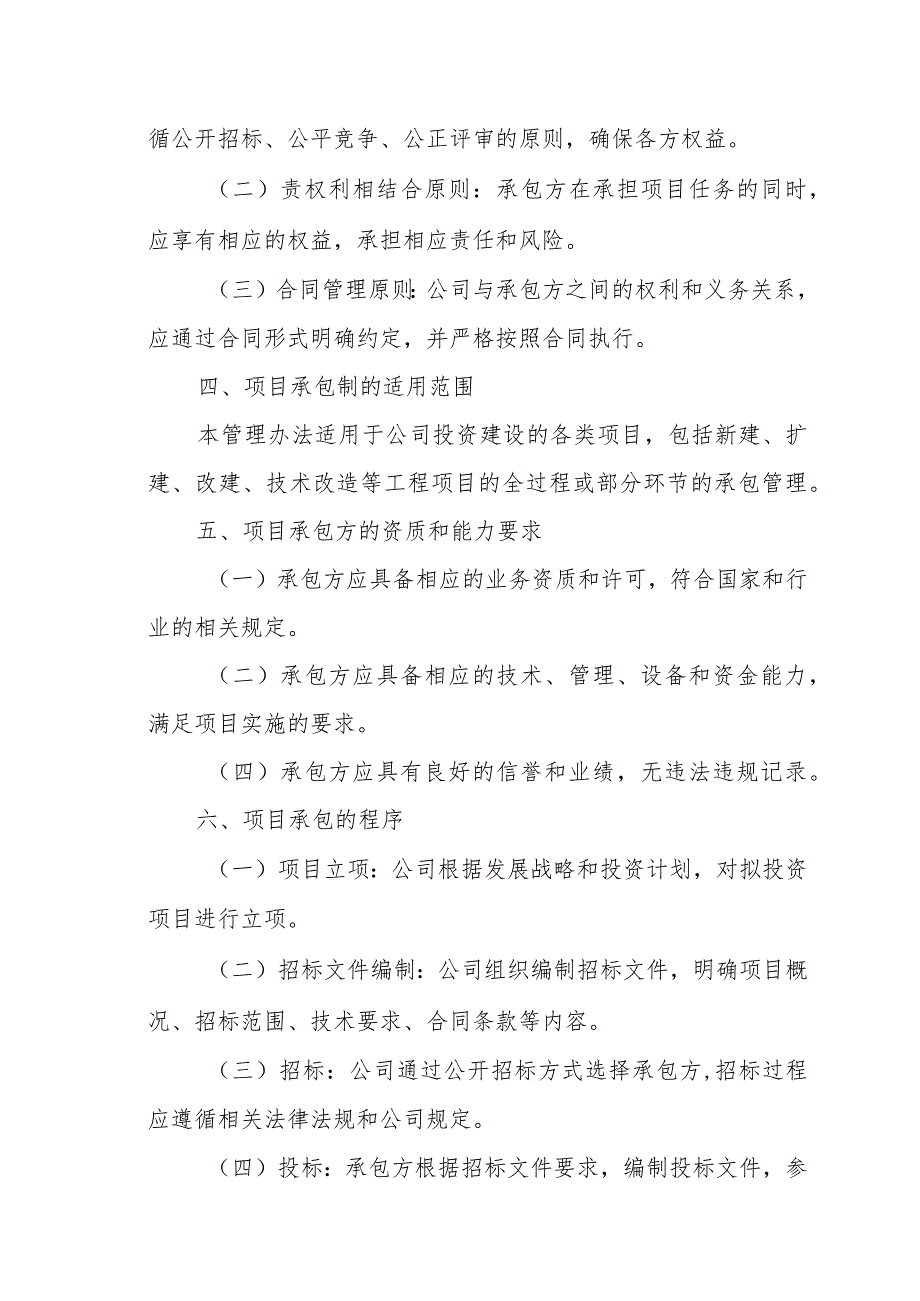 循公开招标、公平竞争、公正评审的原则，确保各方权益。
（二）责权利相结合原则：承包方在承担项目任务的同时，
应享有相应的权益，承担相应责任和风险。
（三）合同管理原则：公司与承包方之间的权利和义务关系，
应通过合同形式明确约定，并严格按照合同执行。
四、项目承包制的适用范围
本管理办法适用于公司投资建设的各类项目，包括新建、扩
建、改建、技术改造等工程项目的全过程或部分环节的承包管理。
五、项目承包方的资质和能力要求
（一）承包方应具备相应的业务资质和许可，符合国家和行
业的相关规定。
（二）承包方应具备相应的技术、管理、设备和资金能力，
满足项目实施的要求。
（四）承包方应具有良好的信誉和业绩，无违法违规记录。
六、项目承包的程序
（一）项目立项：公司根据发展战略和投资计划，对拟投资
项目进行立项。
（二）招标文件编制：公司组织编制招标文件，明确项目概
况、招标范围、技术要求、合同条款等内容。
（三）招标：公司通过公开招标方式选择承包方,招标过程
应遵循相关法律法规和公司规定。
（四）投标：承包方根据招标文件要求，编制投标文件，参